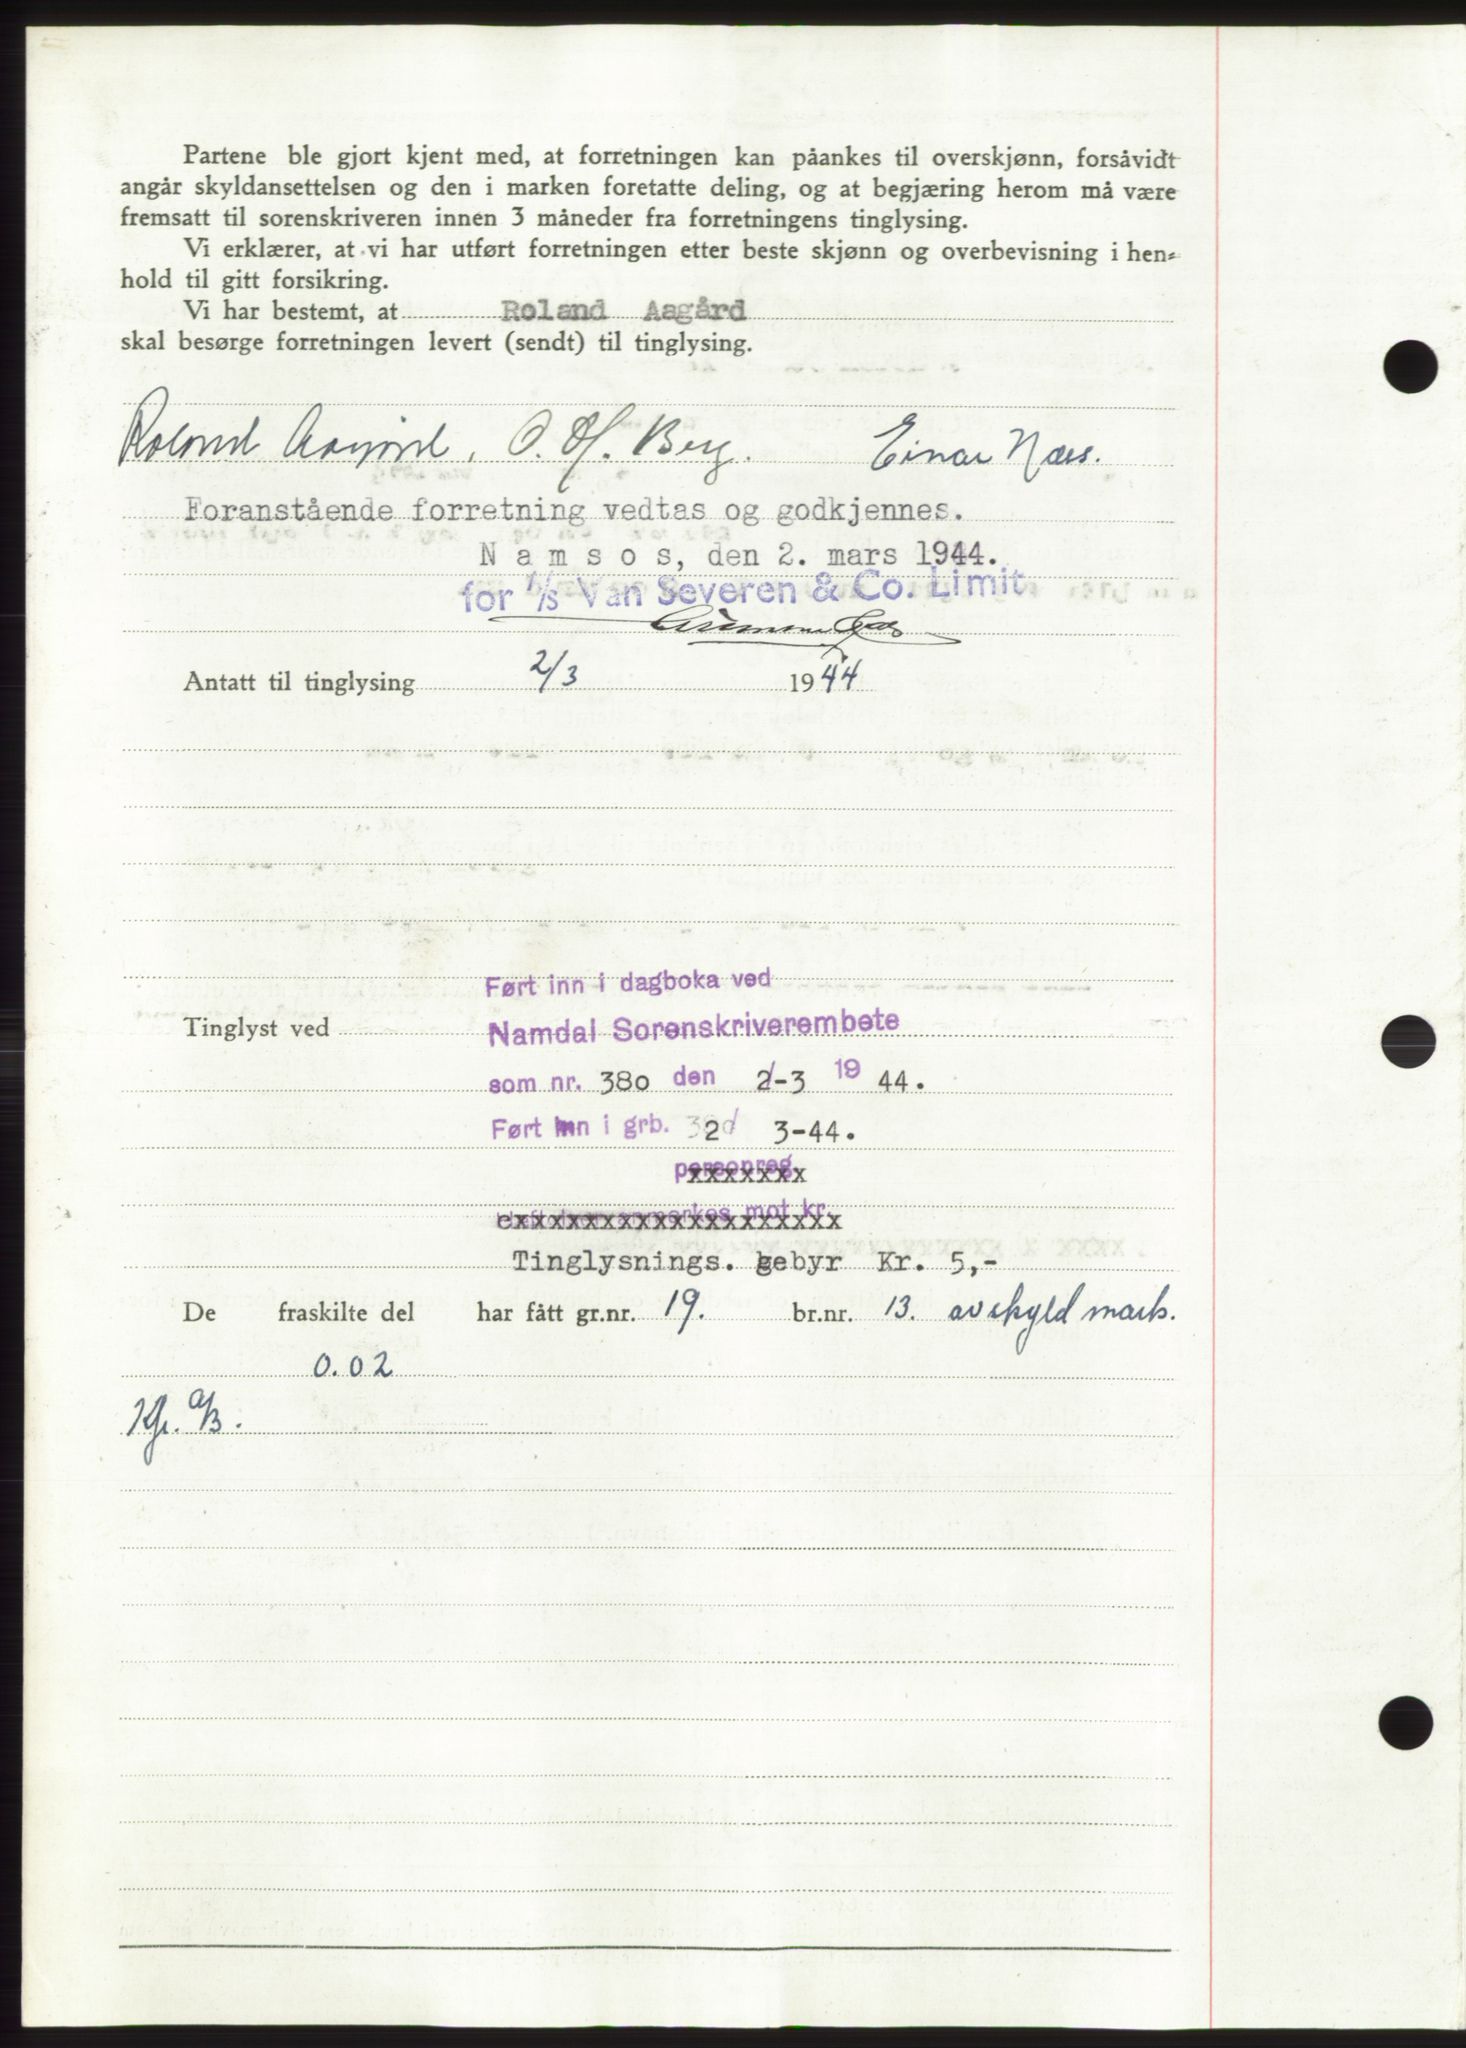 Partene ble gjort kjent med, at forretningen kan påankes til overskjønn, forsåvidt
angår skyldansettelsen og den i marken foretatte deling, og at begjæring herom må være
fremsatt til sorenskriveren innen 3 måneder fra forretningens tinglysing.
Vi erklærer, at vi har utført forretningen etter beste skjønn og overbevisning i hen-
hold til gitt forsikring.
Vi har bestemt, at Roland Aagård
skal besørge forretningen levert (sendt) til tinglysing.
Roland Aagård, O. Berg. Einar Næss.
Foranstående forretning vedtas og godkjennes.
Namsos, den 2. mars 1944.
for I/S Van Severen & Co. Limit
Antatt til tinglysing 2/3 1944
Ført inn i dagboka ved
Tinglyst ved Namdal Sorenskriverembete
som nr. 380 den 2-3 1944.
Ført inn i grb. 2 3-44.
personreg.
xxxxxxx
anmerkes mot kr.
Tinglysnings. gebyr Kr. 5,-
De fraskilte del har fått gr.nr. 19. br.nr. 13. av skyld mark.
0.02